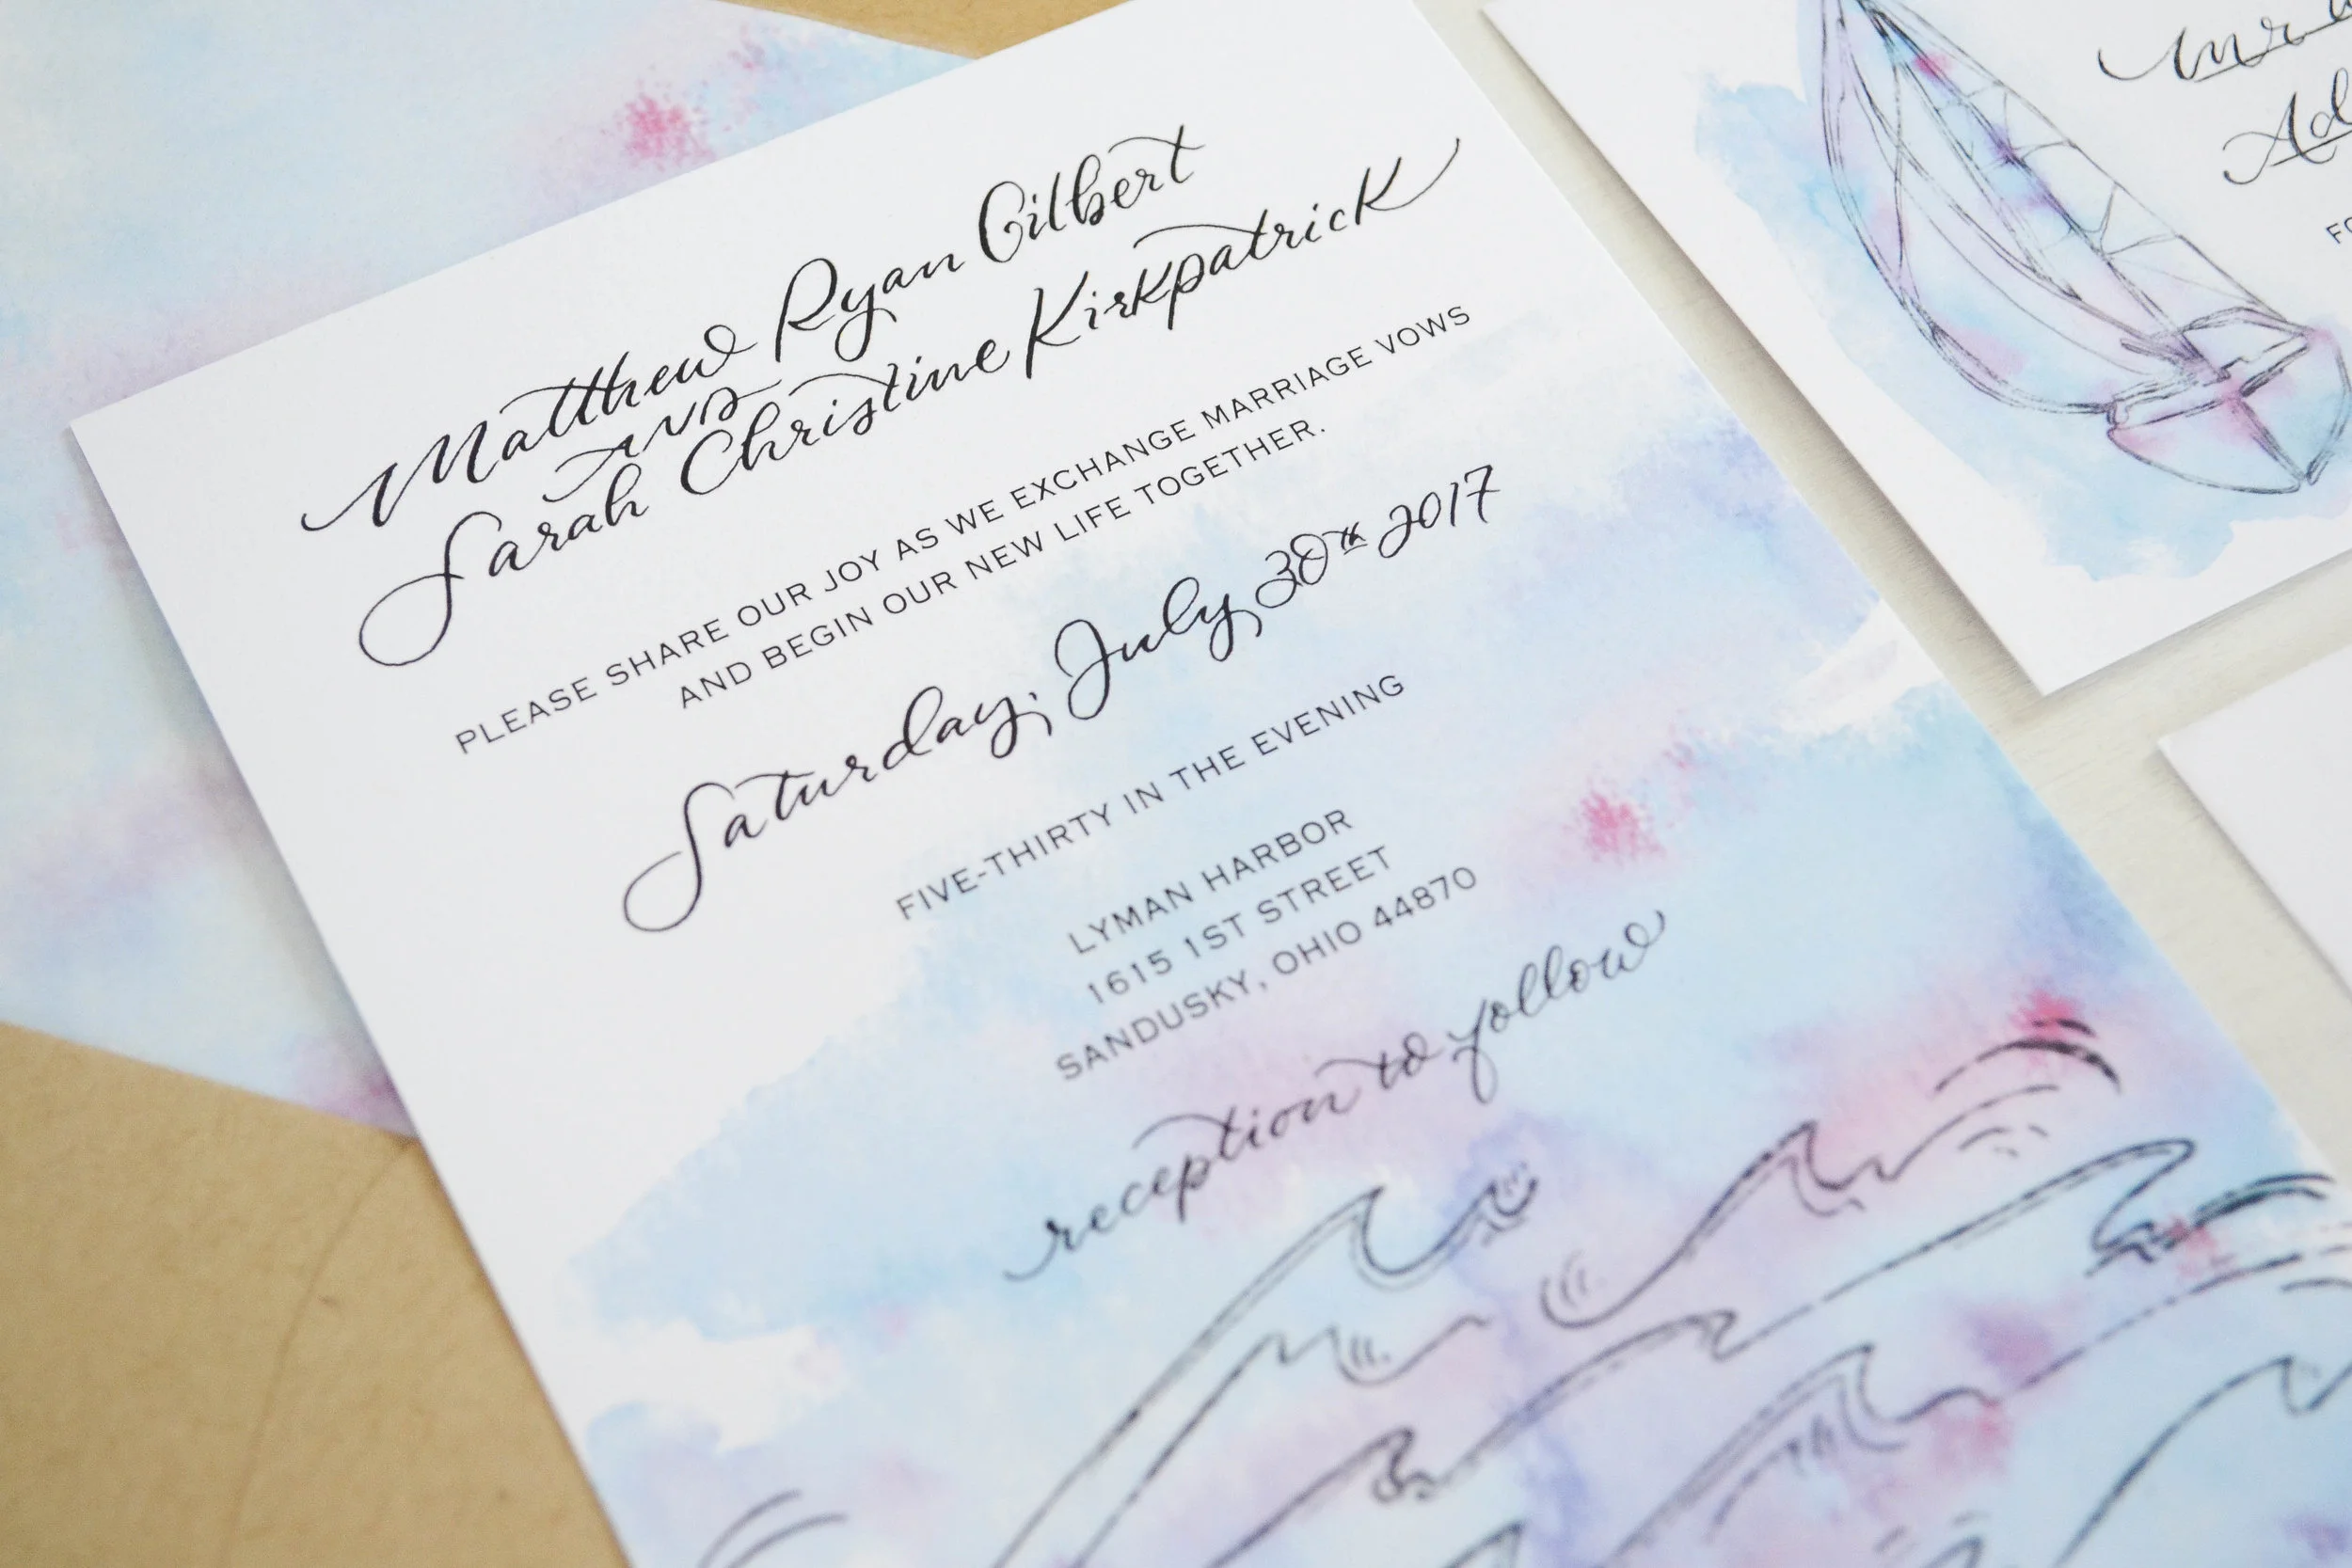 Matthew Ryan Gilbert
AND
Sarah Christine Kirkpatrick
PLEASE SHARE OUR JOY AS WE EXCHANGE MARRIAGE VOWS
AND BEGIN OUR NEW LIFE TOGETHER.
Saturday, July 30th 2017
FIVE-THIRTY IN THE EVENING
LYMAN HARBOR
1615 1ST STREET
SANDUSKY, OHIO 44870
reception to follow